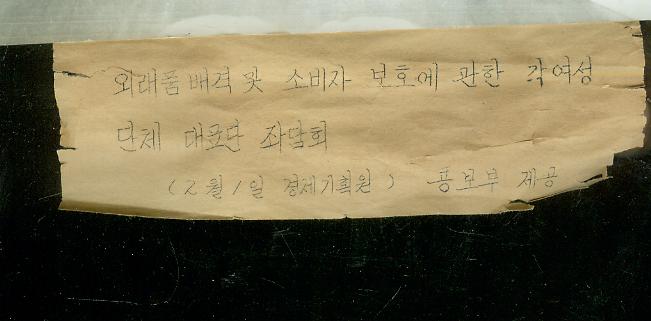 외래품 배격 및 소비자 보호에 관한 각 여성
단체 대표단 좌담회
(2월 1일 경제기획원) 공보부 제공